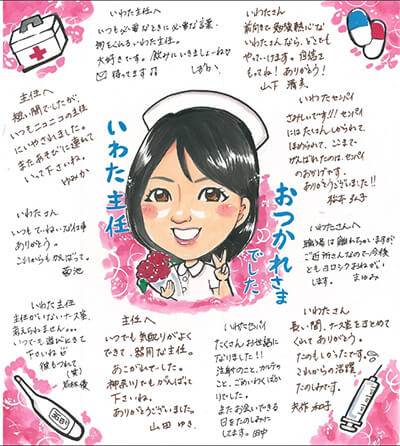 いわた主任へ
いつも必要なときに必要な言葉
何をくれるいわた主任。
大好きです。飲みに行きましょーね♡
待ってます
しずか
いわたさん
前向きで勉強熱心な
いわたさんなら、どこでも
やっていけます。自信を
もってね！ありがとう！
山下 清美
主任へ
短い間でしたが、
いつもニコニコの主任
にいやされました。
またあそびに連れて
いって下さいね。
ゆみか
いわたセンパイ
さみしいです!!! センパイ
にはたくさんしかられて、
ほめられて、ここまで
がんばれたのは、センパイ
のおかげです。
ありがとうございました!!
松本 弘子
いわた主任
おつかれさま
でした
いわたさん
いつもてーねいな仕事
ありがとう。
これからもがんばって。
菊池
職場は離れちゃいますが、
ご近所さんなので、今後
ともヨロシクおねがい
します。 まゆみ
いわた主任
主任がいないナース室、
考えられません…
いつでも遊びにきて
下さいね
彼もつれて
(笑)
若林 優
主任へ
いつでも気配りがよく
できて、器用な主任。
あこがれでした。
神奈川でもがんばって
下さいね。
ありがとうございました。
山田 ゆき
いわたセンパイ
たくさんお世話に
なりました!!
注射のこと、カルテの
こと、ごめいわくばか
りでした。
またお会いできる
日をたのしみに
してます。田中
いわたさん
長い間、ナース室をまとめて
くれてありがとう。
たのもしかったです。
これからの活躍、
たのしみです。
矢作 和子